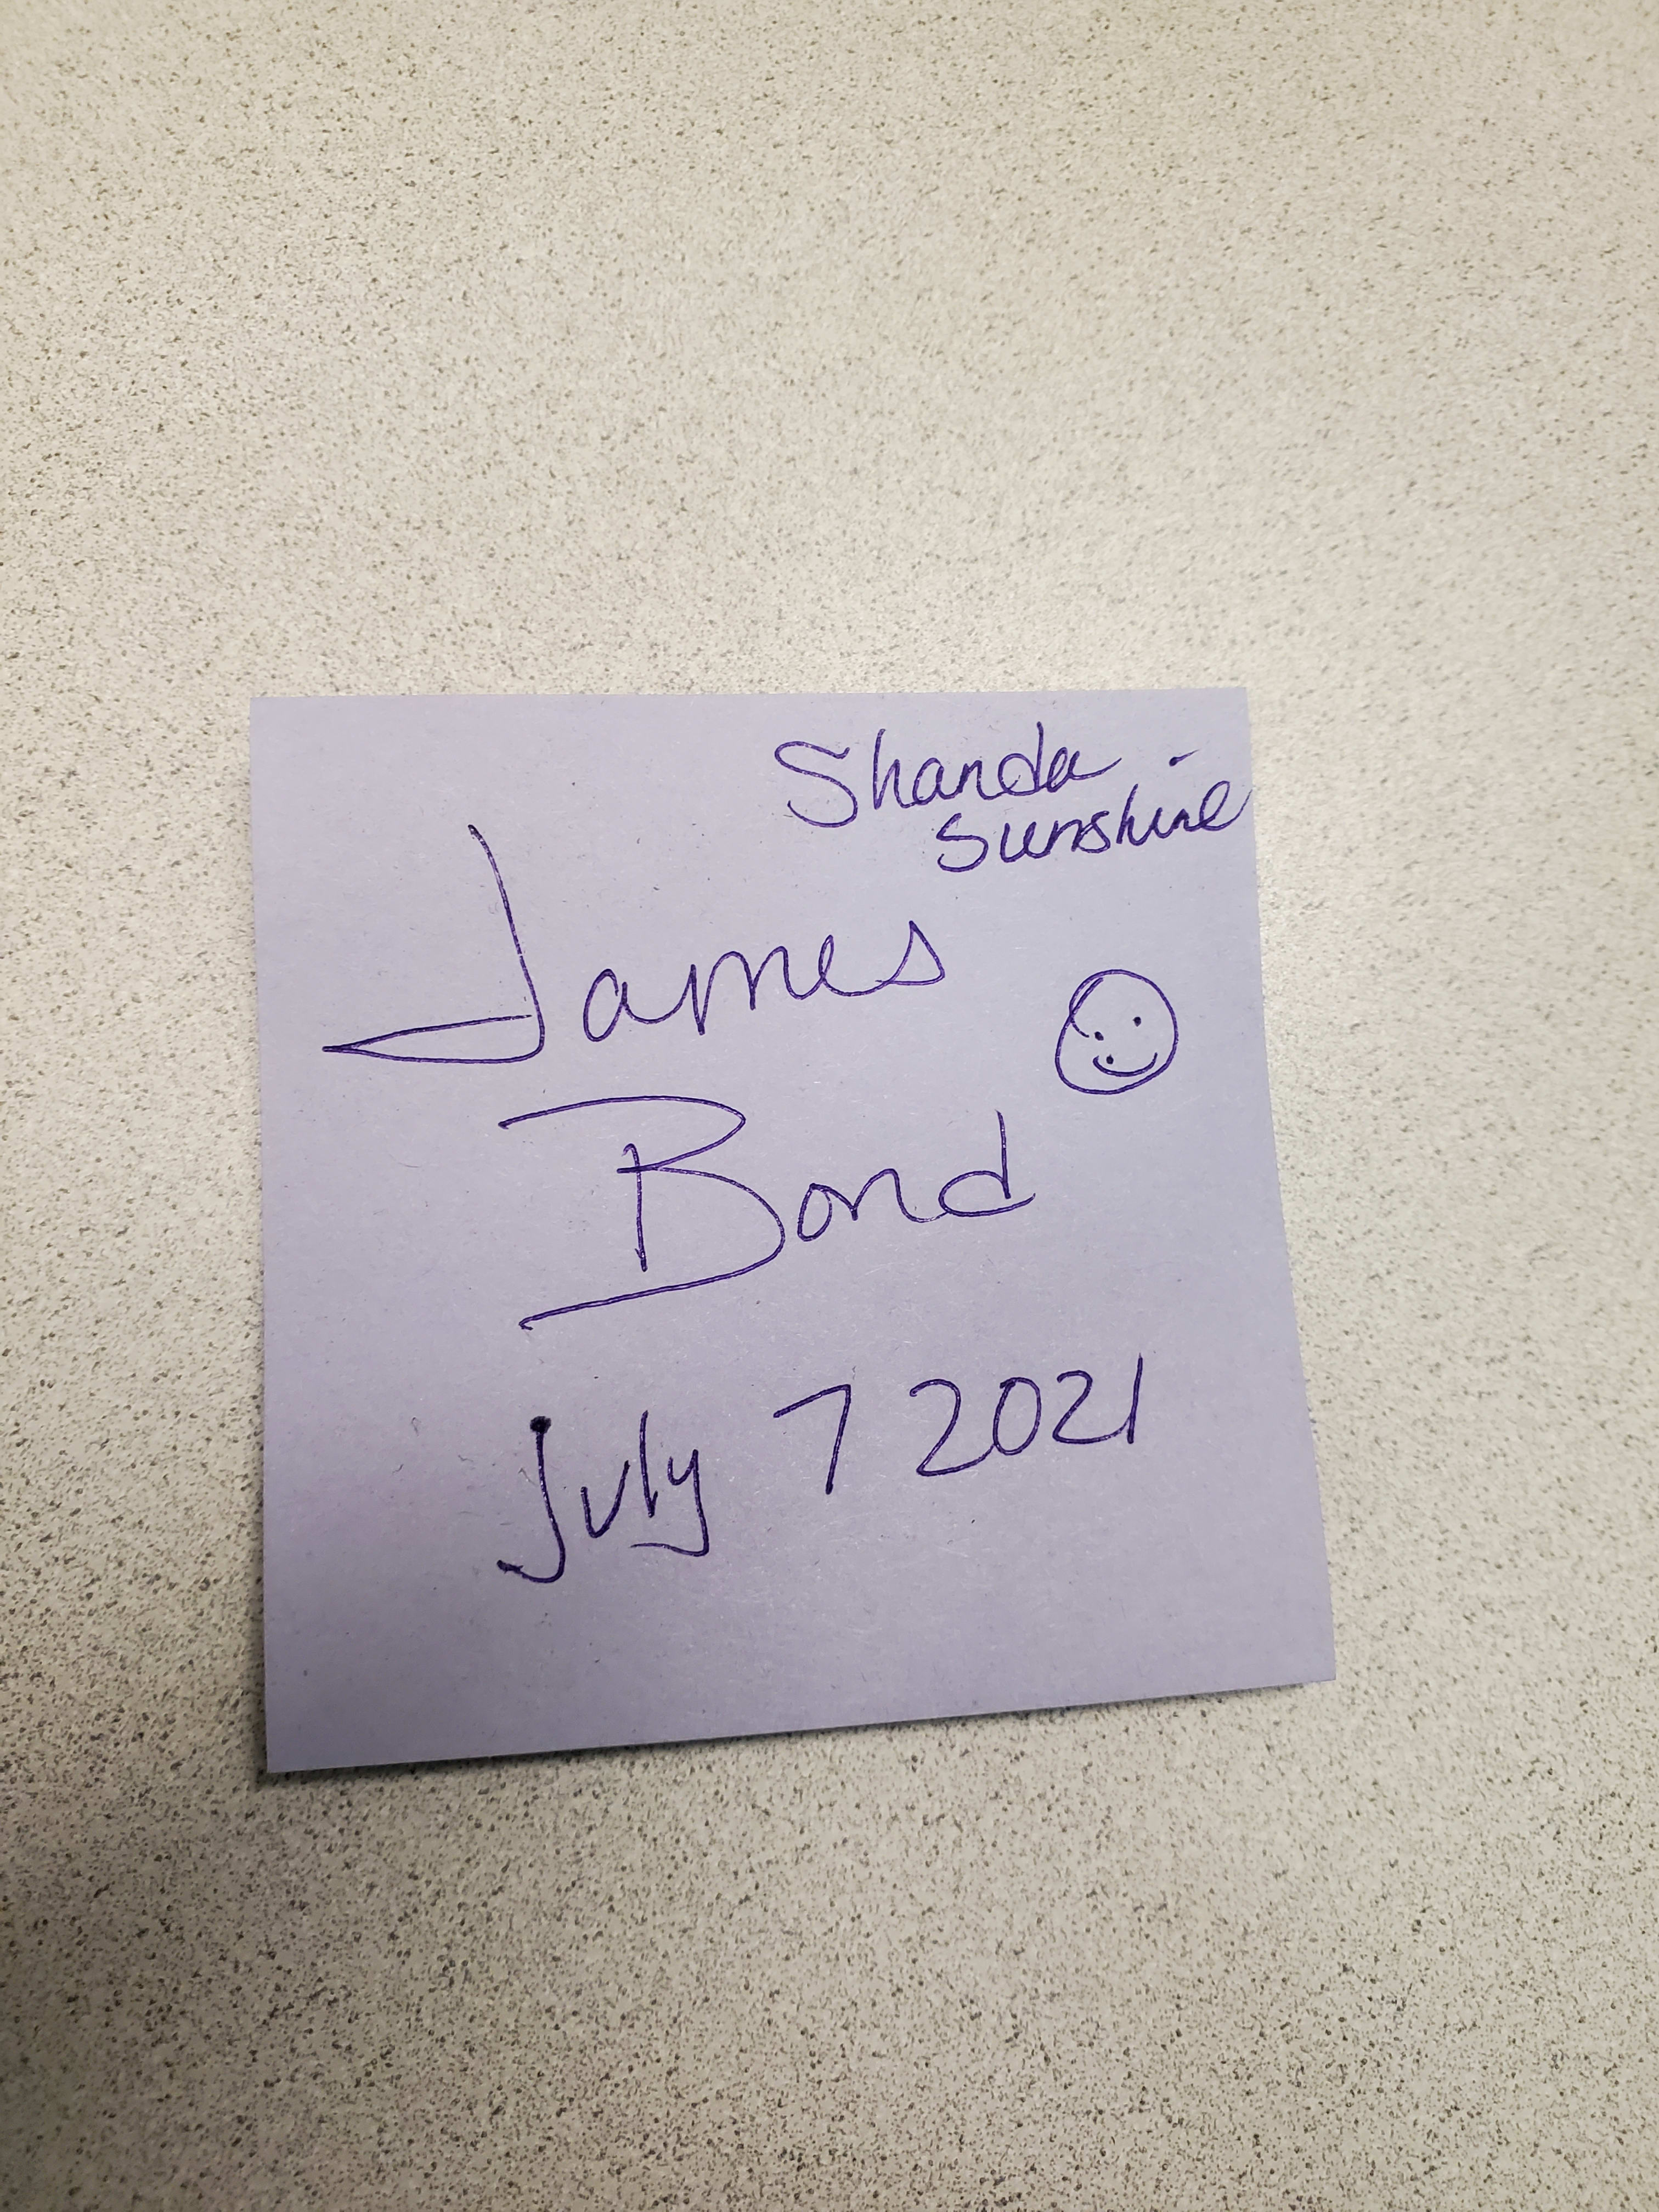 Shanda
Sunshine
James
Bond
July 7 2021